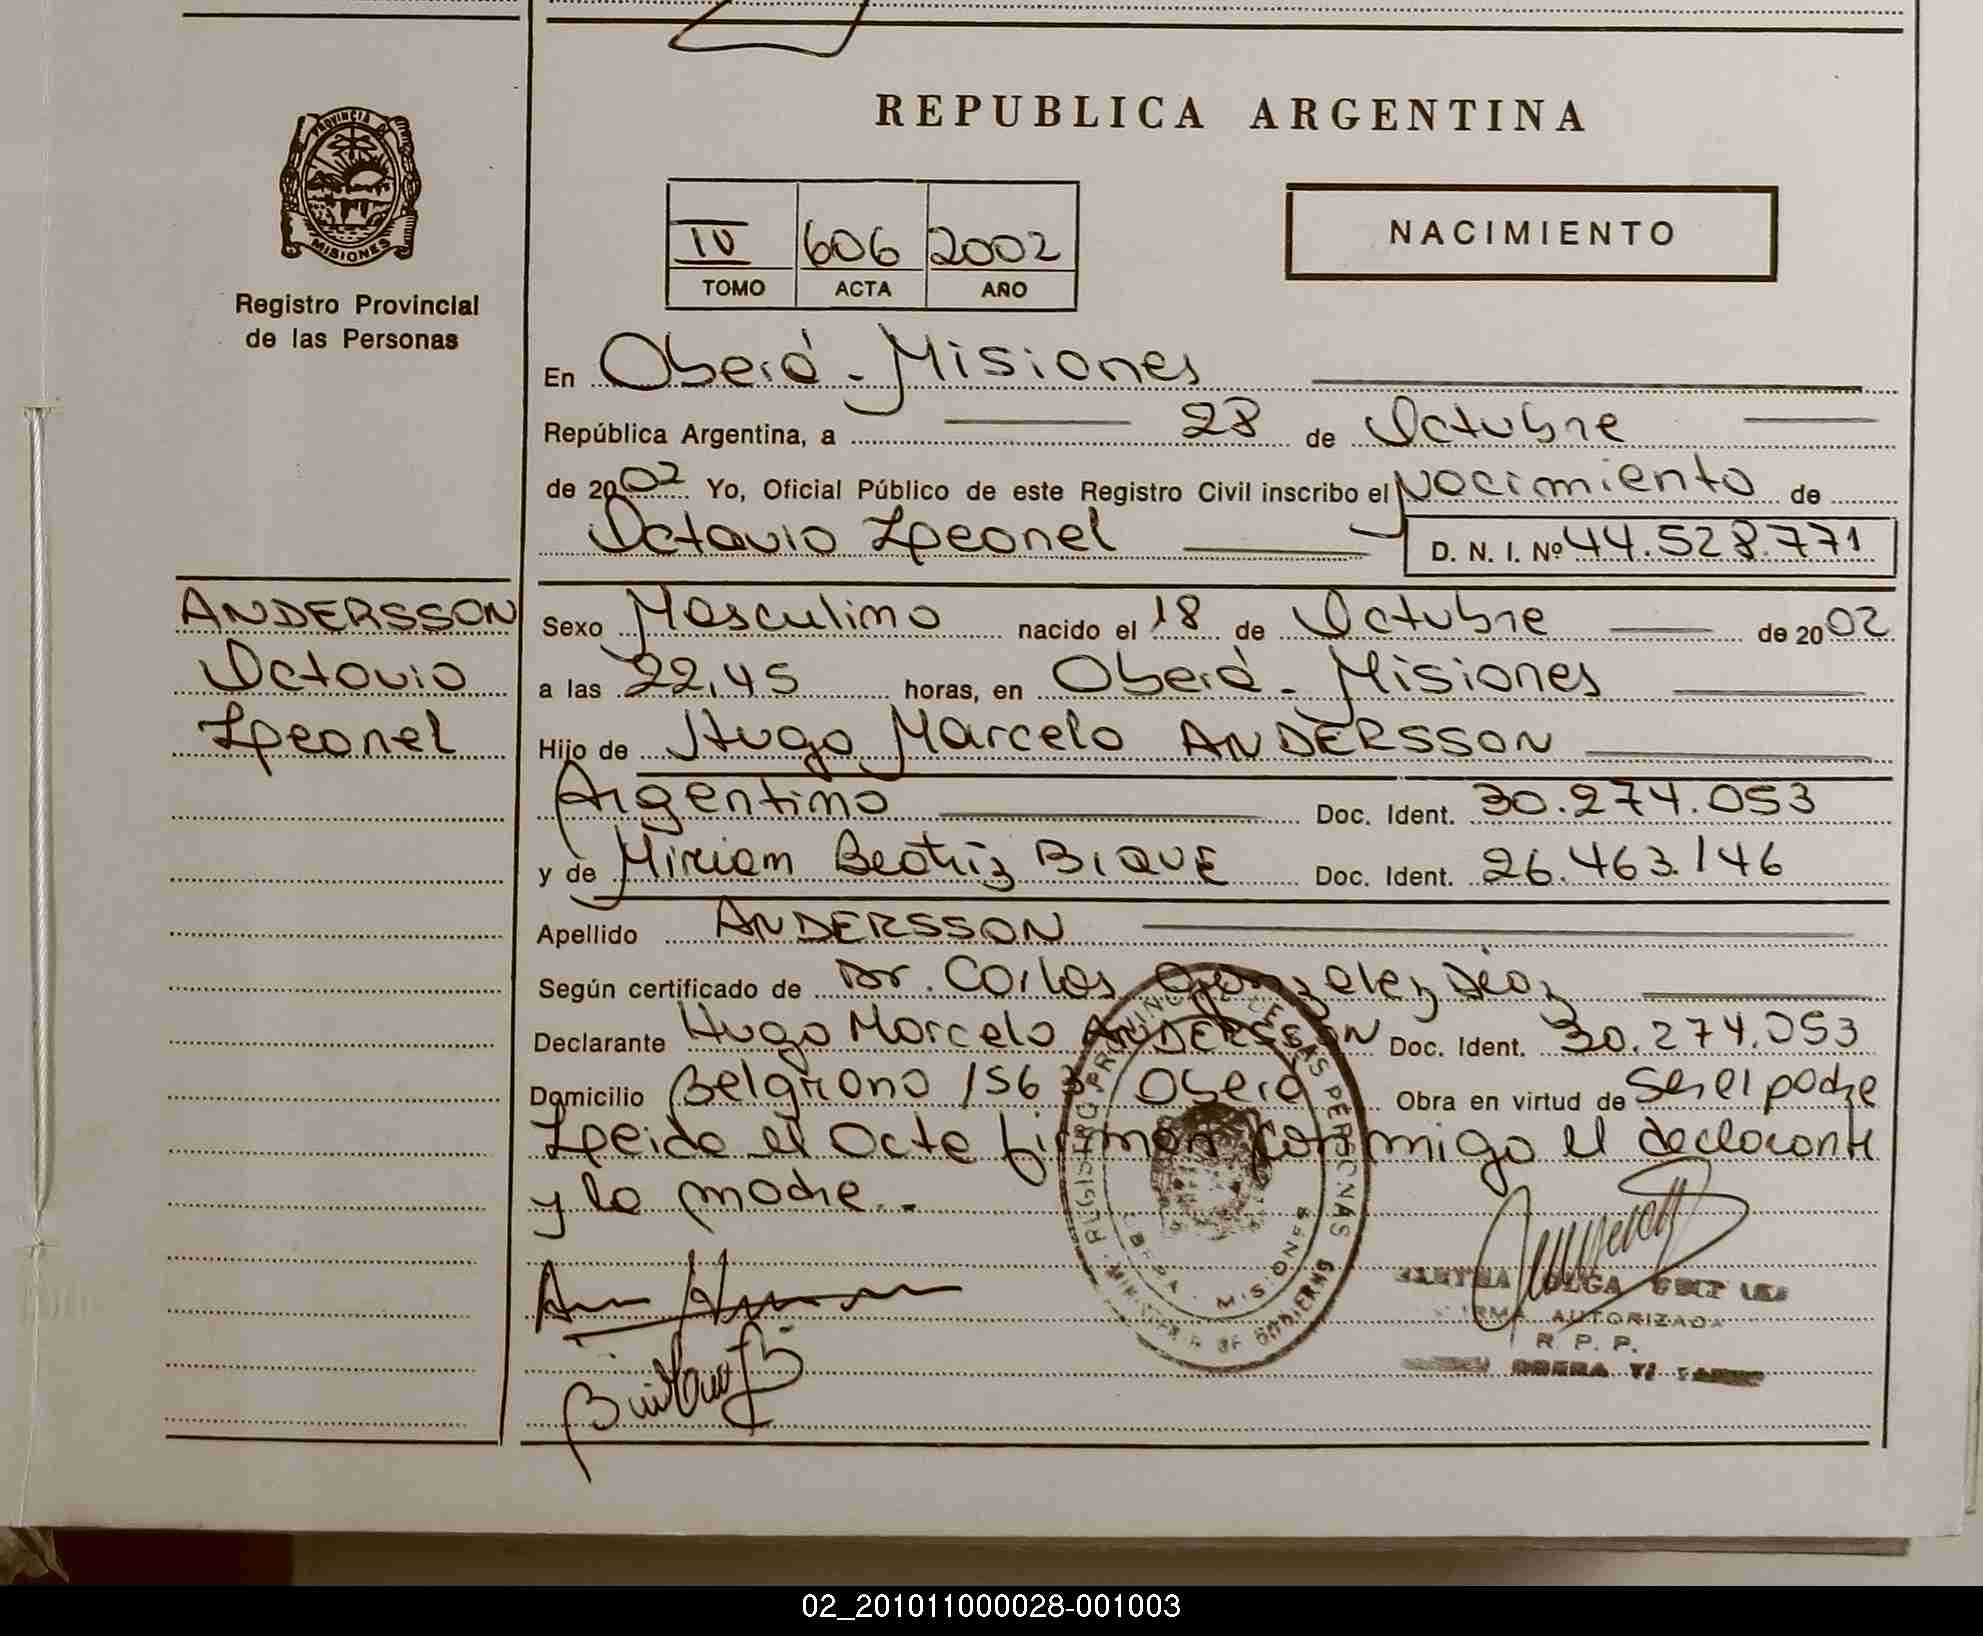 REPUBLICA ARGENTINA
PROVINCIA DE
MISIONES
Registro Provincial
de las Personas
IV 606 2002
TOMO ACTA AÑO
NACIMIENTO
En Oberá - Misiones
República Argentina, a 28 de Octubre
de 2002 Yo, Oficial Público de este Registro Civil inscribo el Nacimiento de
Octavio Leonel D. N. I. Nº 44.528.771
ANDERSSON
Octavio
Leonel
Sexo Masculino nacido el 18 de Octubre de 2002
a las 22,45 horas, en Oberá - Misiones
Hijo de Hugo Marcelo ANDERSSON
Argentino Doc. Ident. 30.274.053
y de Miriam Beatriz BIQUE Doc. Ident. 26.463.146
Apellido ANDERSSON
Según certificado de Dr. Carlos Gonzalez Diaz
Declarante Hugo Marcelo ANDERSSON Doc. Ident. 30.274.053
Domicilio Belgrano 1563 Oberá Obra en virtud de ser el padre
Leida el acta firman conmigo el declarante
y la madre.-
REGISTRO PROVINCIAL DE LAS PERSONAS
OBERA - MISIONES
MINISTERIO DE GOBIERNO
OLGA
FIRMA AUTORIZADA
R. P. P.
OBERA
02_201011000028-001003